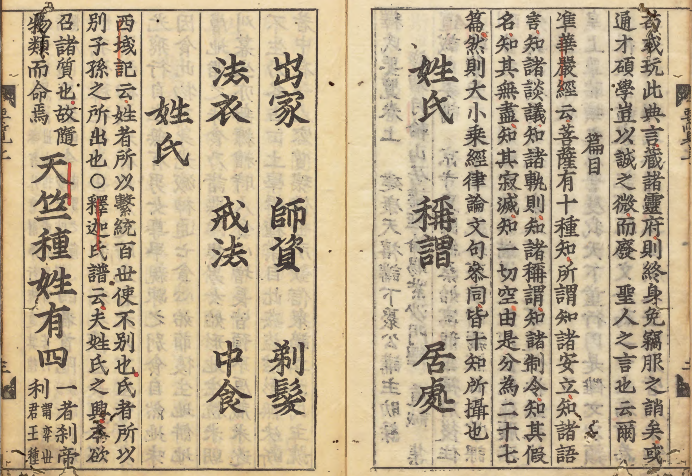 苟或玩此典言蔵諸靈府則終身免竊服之誚矣或
通才碩學豈以誠之微而廢文聖人之言也云爾
篇目
准華嚴經云菩薩有十種知所謂知諸安立知諸語
言知諸談議知諸軌則知諸稱謂知諸制令知其假
名知其無盡知其寂滅知一切空由是分為二十七
篇然則大小乘經律論文句叅同皆十知所攝也
姓氏 稱謂 居處
出家 師資 剃髮
法衣 戒法 中食
姓氏
西域記云姓者所以繫統百世使不別也氏者所以
別子孫之所出也○釋迦氏譜云夫姓氏之興本欲
召諸質也故隨
物類而命焉 天竺種姓有四 一者刹帝
利謂奕世
君王種